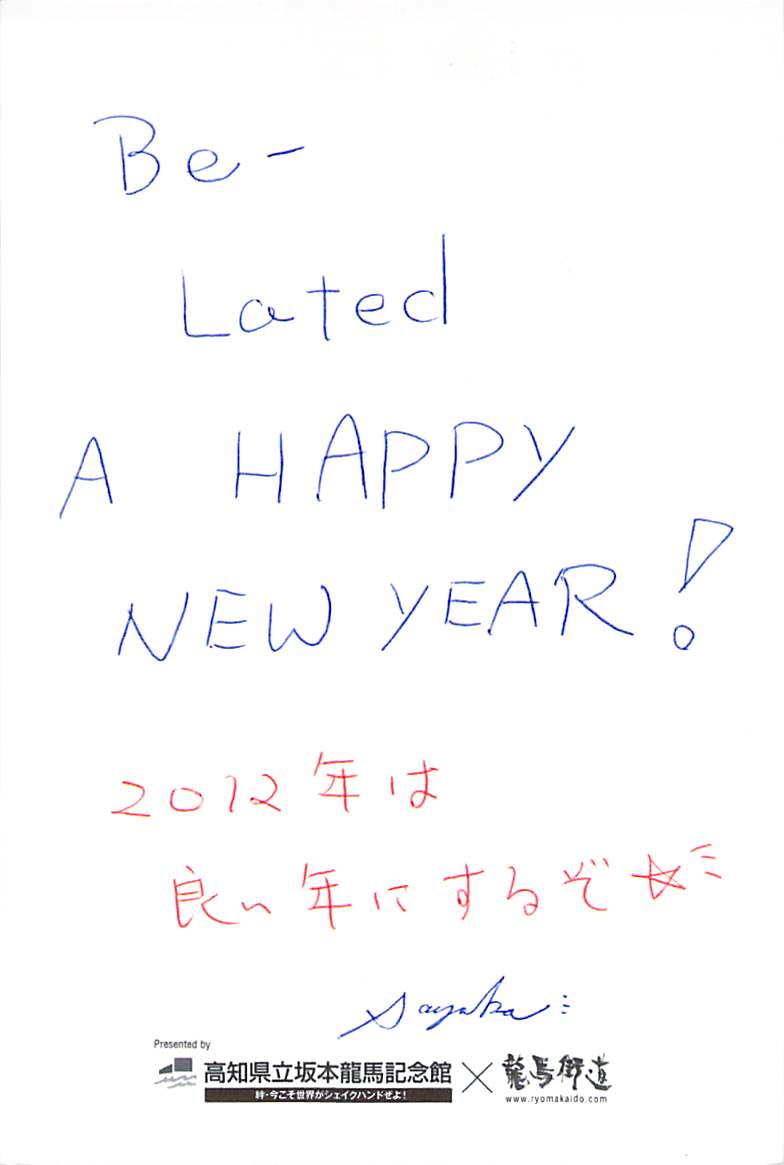 Be-
Lated
A HAPPY
NEW YEAR!
2012年は
良い年にするぞ☆
Sayaka
Presented by
高知県立坂本龍馬記念館 × 龍馬街道
絆・今こそ世界がシェイクハンドぜよ!
www.ryomakaido.com